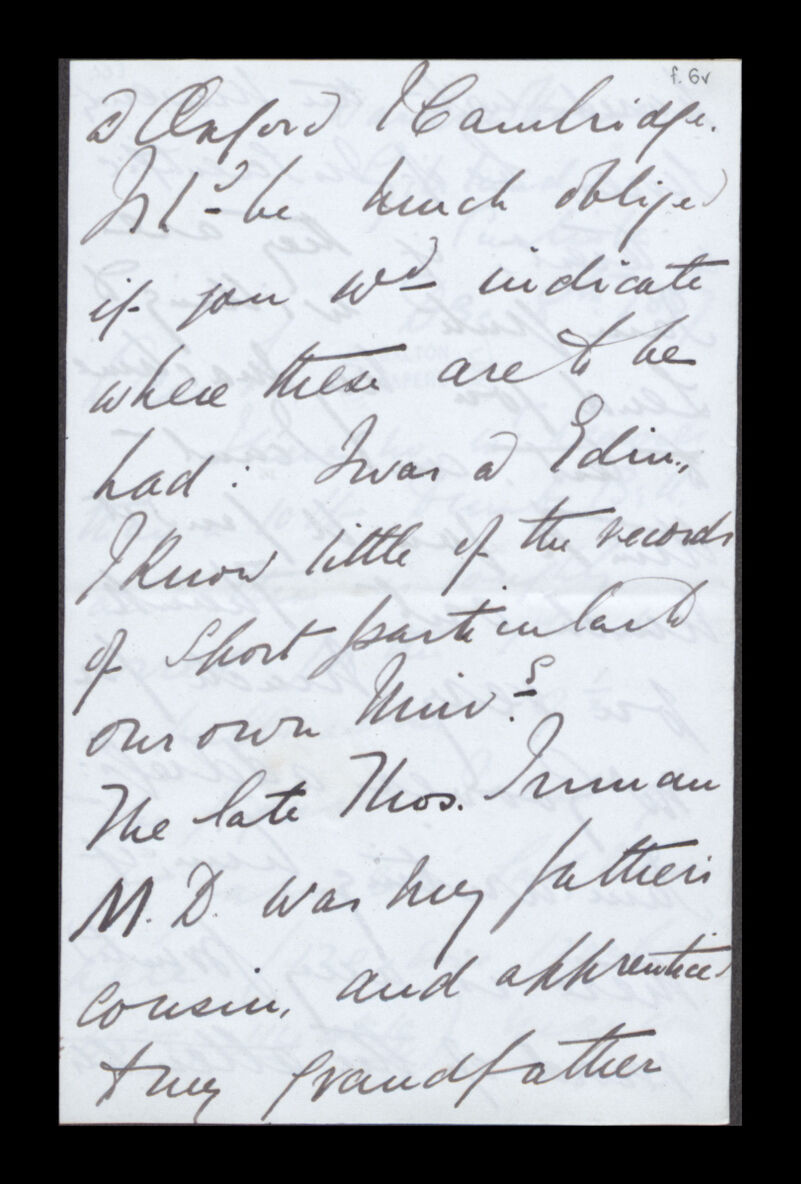 f. 6v
@ Oxford & Cambridge.
I sh^d be much obliged
if you w^d indicate
where these are to be
had: I was @ Edin.,
& know little of the records
of sport particular to
our own Univ.^s
The late Thos. Inman
M.D. was my father's
cousin, and apprenticed
to my grandfather